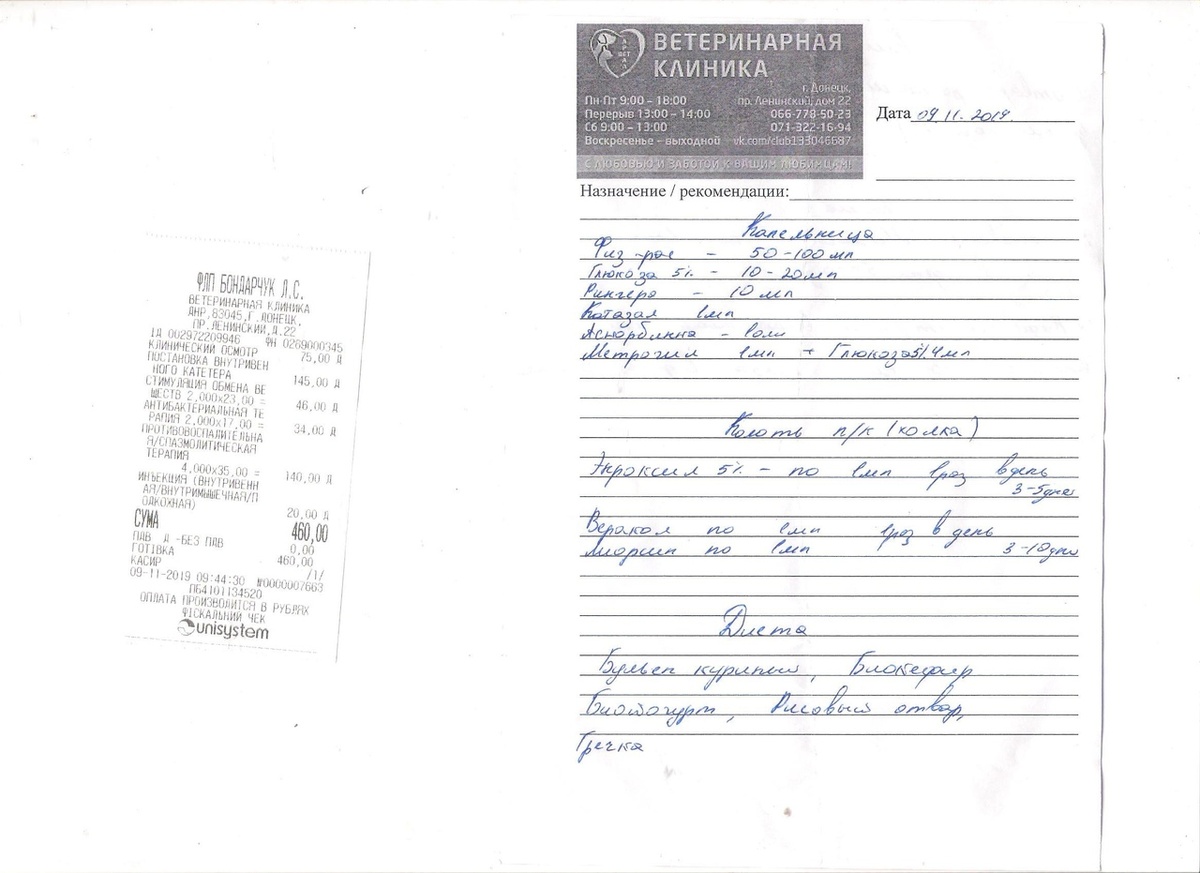 ФЛП БОНДАРЧУК Л.С.
ВЕТЕРИНАРНАЯ КЛИНИКА
ДНР,83045,Г.ДОНЕЦК,
ПР.ЛЕНИНСКИЙ,Д.22
ІД 002972209946 ФН 0269000345
КЛИНИЧЕСКИЙ ОСМОТР 75,00 Д
ПОСТАНОВКА ВНУТРИВЕН
НОГО КАТЕТЕРА 145,00 Д
СТИМУЛЯЦИЯ ОБМЕНА ВЕ
ЩЕСТВ 2,000x23,00 = 46,00 Д
АНТИБАКТЕРИАЛЬНАЯ ТЕ
РАПИЯ 2,000x17,00 = 34,00 Д
ПРОТИВОВОСПАЛИТЕЛЬНА
Я/СПАЗМОЛИТИЧЕСКАЯ
ТЕРАПИЯ
4,000x35,00 = 140,00 Д
ИНЪЕКЦИЯ (ВНУТРИВЕНН
АЯ/ВНУТРИМЫШЕЧНАЯ/П
ОДКОЖНАЯ) 20,00 Д
СУМА 460,00
ПДВ Д -БЕЗ ПДВ 0,00
ГОТІВКА 460,00
КАСИР /1/
09-11-2019 09:44:30 №0000007663
ПБ4101134520
ОПЛАТА ПРОИЗВОДИТСЯ В РУБЛЯХ
ФІСКАЛЬНИЙ ЧЕК
unisystem
ВЕТЕРИНАРНАЯ
КЛИНИКА
г. Донецк,
Пн-Пт 9:00 – 18:00 пр. Ленинский, дом 22
Перерыв 13:00 – 14:00 066-778-50-23
Сб 9:00 – 13:00 071-322-16-94
Воскресенье – выходной vk.com/club133046687
С ЛЮБОВЬЮ И ЗАБОТОЙ К ВАШИМ ЛЮБИМЦАМ!
Дата 09.11.2019.
Назначение / рекомендации:
Капельница
Физ-рас - 50-100мл
Глюкоза 5% - 10-20мл
Рингера - 10 мл
Катазал 1мл
Аскорбинка -
Метрогил 1мл + Глюкоза5% 4мл
Колоть п/к (холка)
Энроксил 5% - по 1мл 1раз вдень
3-5дней
Веракол по 1мл 1раз в день
Лиарсин по 1мл 3-10дней
Диета
Бульен куриный, Биокефир
Биойогурт, Рисовый отвар,
Гречка